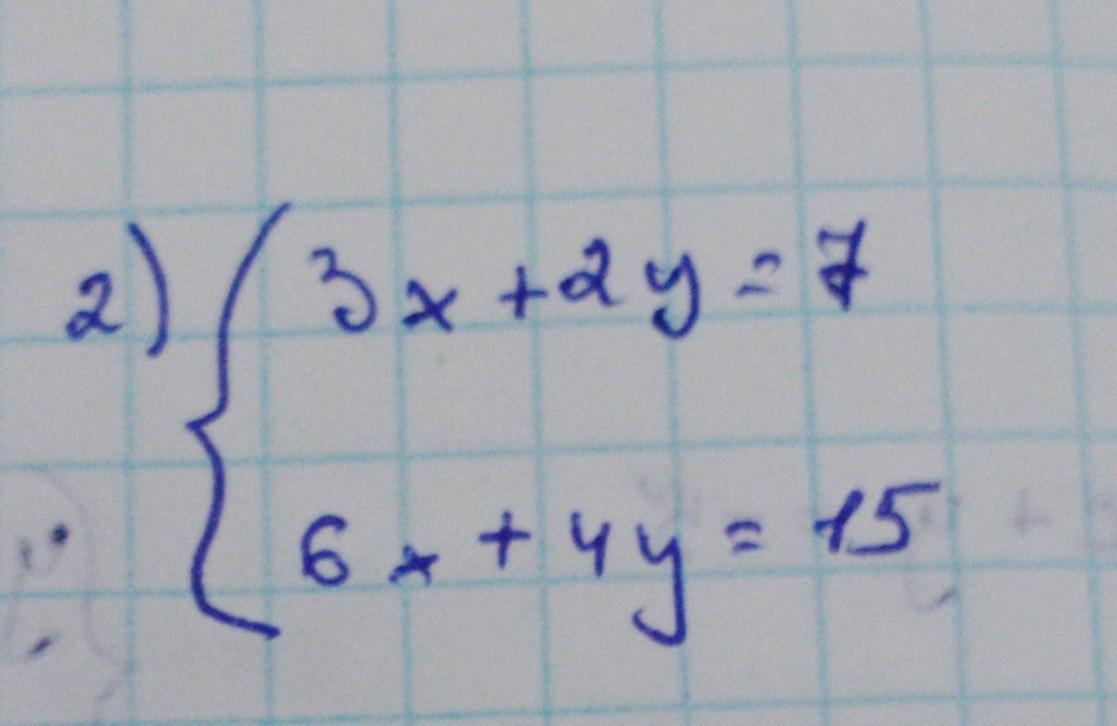 2) { 3x + 2y = 7
6x + 4y = 15